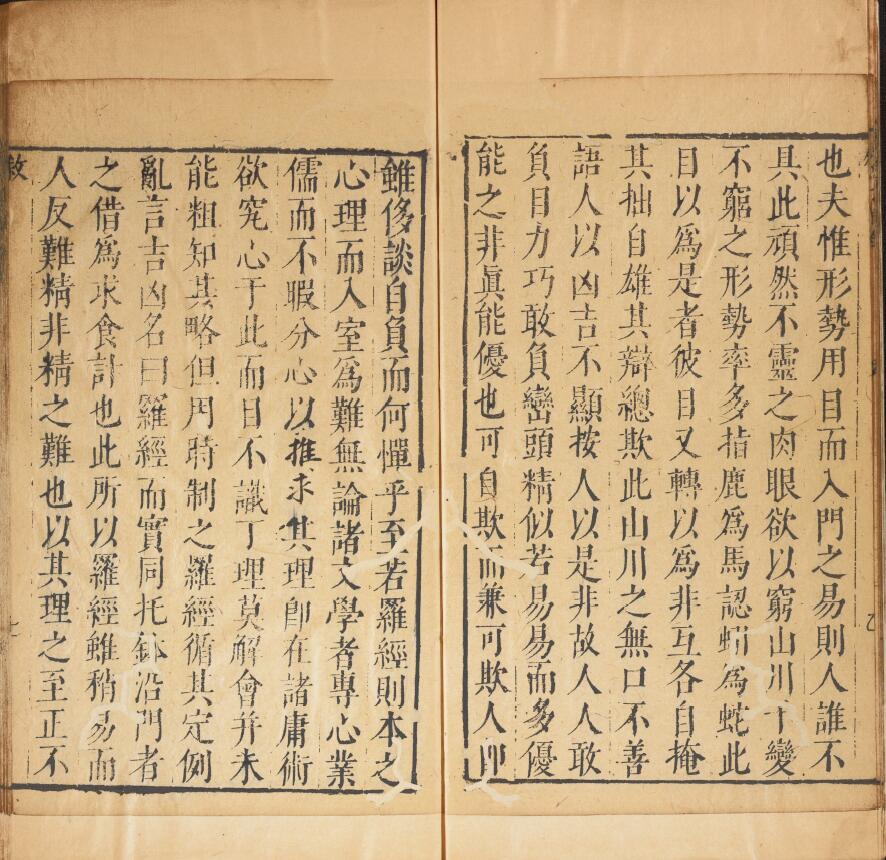 也夫惟形勢用目而入門之易則人誰不
具此頑然不靈之肉眼欲以窮山川十變
不窮之形勢率多指鹿爲馬認蚓爲蛇此
目以爲是者彼目又轉以爲非互各自掩
其拙自雄其辯總欺此山川之無口不善
語人以凶吉不顯按人以是非故人人敢
負目力巧敢負巒頭精似若易易而多優
能之非眞能優也可自欺而兼可欺人卽
雖侈談自負而何憚乎至若羅經則本之
心理而入室爲難無論諸文學者專心業
儒而不暇分心以推求其理卽在諸庸術
欲究心于此而目不識丁理莫解會并未
能粗知其略但用時制之羅經循其定例
亂言吉凶名曰羅經而實同托鉢沿門者
之借爲求食計也此所以羅經雖稍易而
人反難精非精之難也以其理之至正不
敘
七